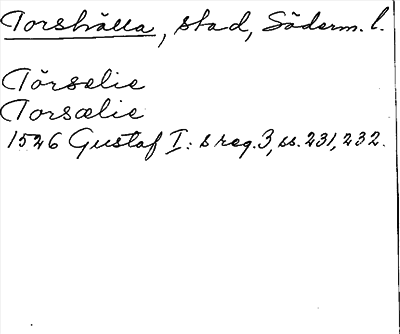 Torshälla, stad, Söderm. l.
Törselie
Torsælie
1526 Gustaf I:s reg. 3, ss. 231, 232.